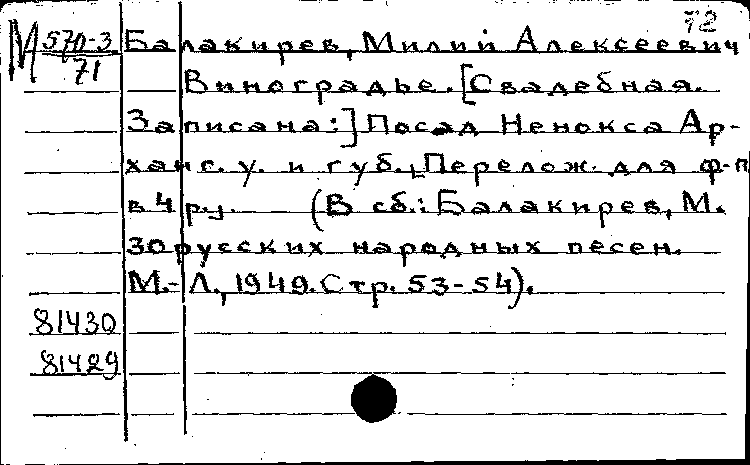 72
М 570-3/71 Балакирев, Милий Алексеевич
Виноградье. [Свадебная.
Записана:] Посад Ненокса Ар-
ханг. у. и губ. Перелож. для ф-п
в 4 ру. (В сб.: Балакирев, М.
30 русских народных песен.
М.-Л., 1949. Стр. 53-54).
81430
81429